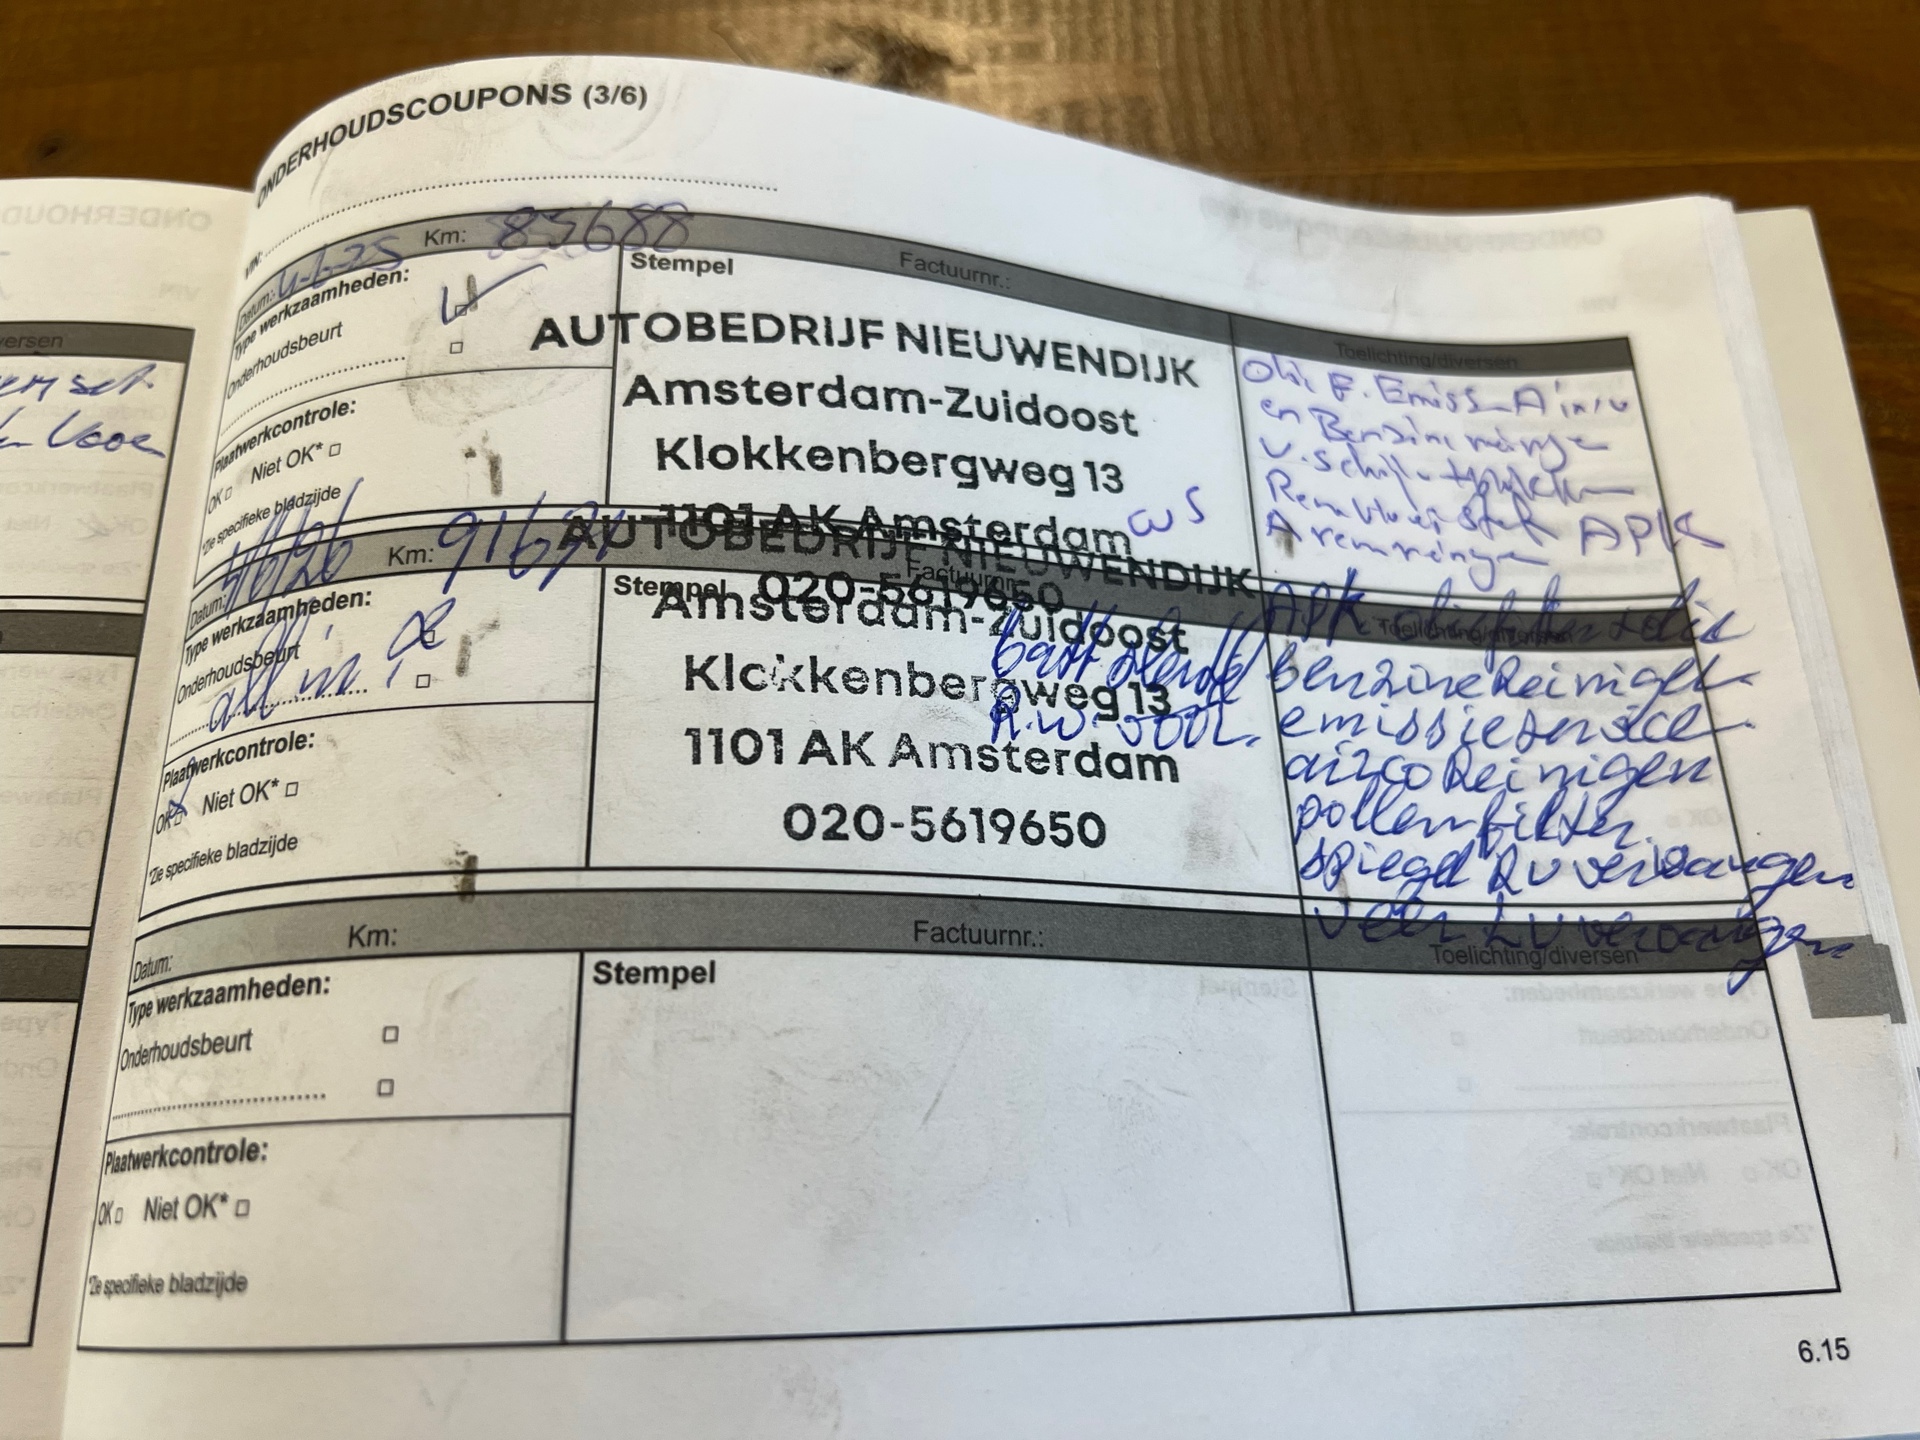 ONDERHOUDSCOUPONS (3/6)
VIN:
Datum: 4-6-25 Km: 85688 Factuurnr.:
Type werkzaamheden:
Onderhoudsbeurt
Plaatwerkcontrole:
OK Niet OK*
*Zie specifieke bladzijde
Stempel
AUTOBEDRIJF NIEUWENDIJK
Amsterdam-Zuidoost
Klokkenbergweg 13
1101 AK Amsterdam
020-5619650
Toelichting/diversen
Olie F. Emiss
en Benzine
APK
Datum: Km: Factuurnr.:
Type werkzaamheden:
Onderhoudsbeurt
all in
Plaatwerkcontrole:
OK Niet OK*
*Zie specifieke bladzijde
Stempel
AUTOBEDRIJF NIEUWENDIJK
Amsterdam-Zuidoost
Klokkenbergweg 13
1101 AK Amsterdam
020-5619650
Toelichting/diversen
APK oliefilter olie
benzine Reinigen
emissieservice
airco Reinigen
pollenfilter
spiegel RV vervangen
veer LV vervangen
Datum: Km: Factuurnr.:
Type werkzaamheden:
Onderhoudsbeurt
Plaatwerkcontrole:
OK Niet OK*
*Zie specifieke bladzijde
Stempel
Toelichting/diversen
6.15